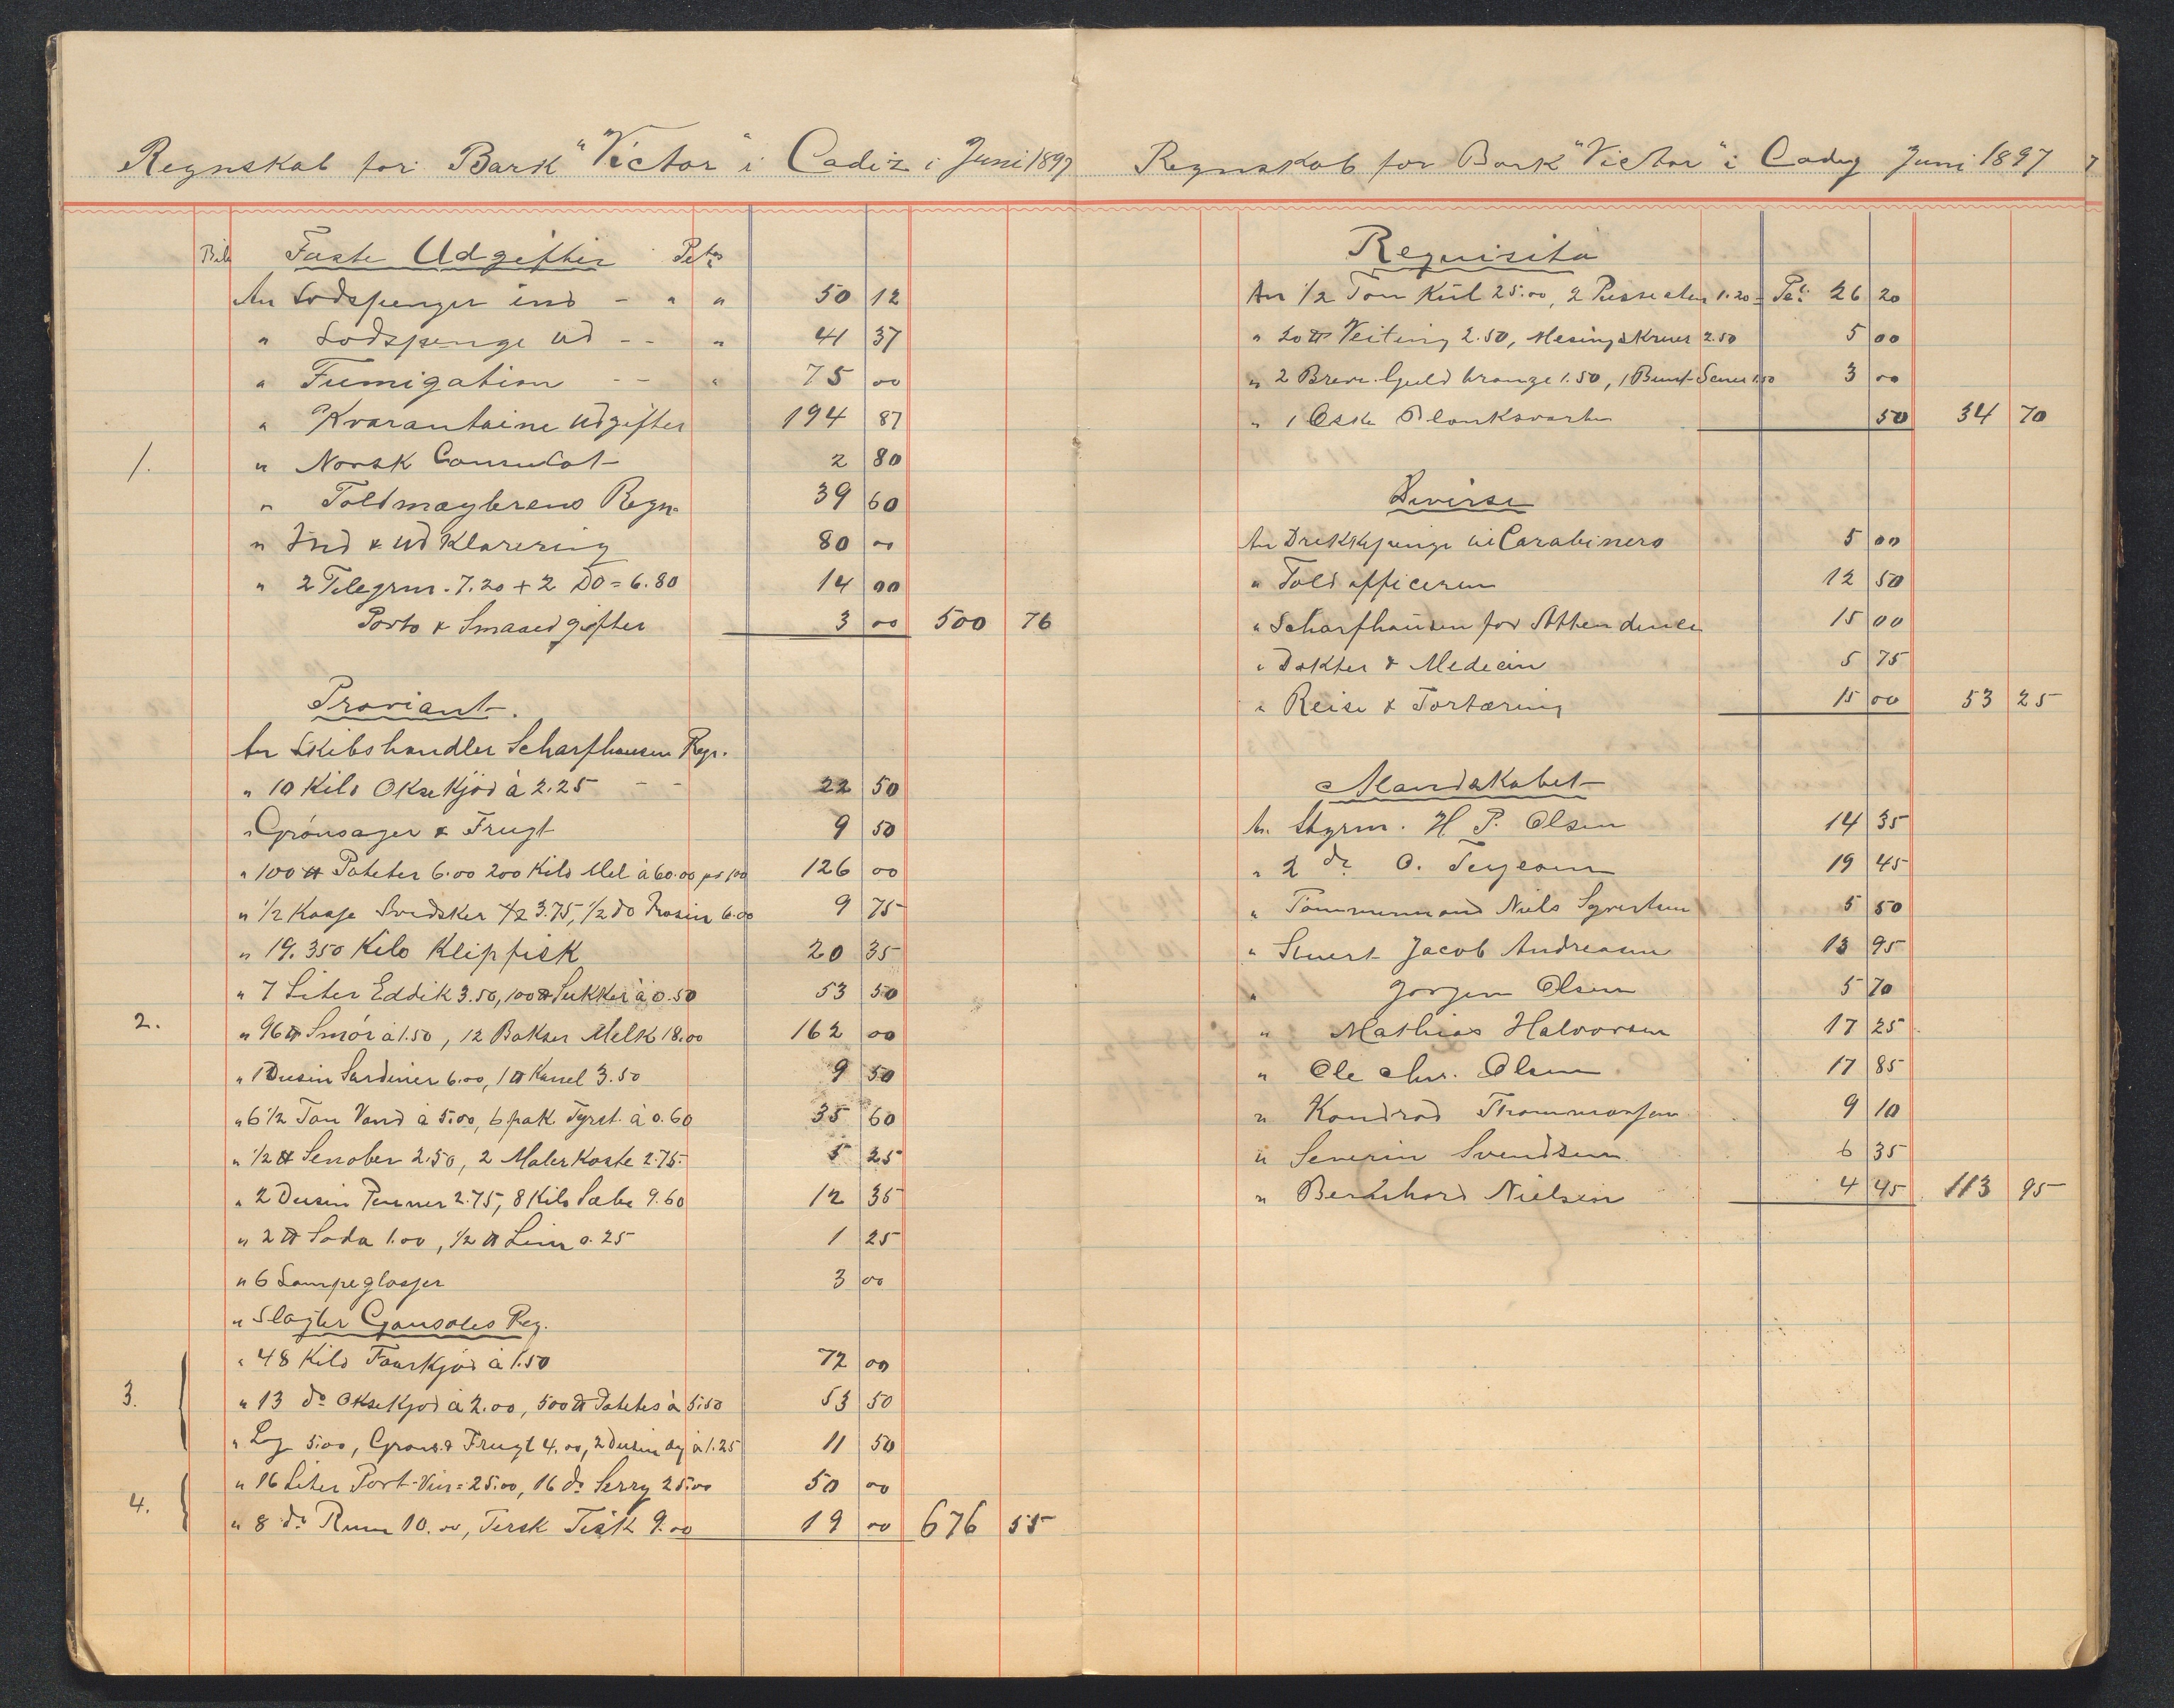 Regnskab for Bark "Victor" i Cadiz i Juni 1897
Bil. Faste Udgifter Pets
An Lodspenger ind - " " 50 12
" Lodspenge ud - - " 41 37
" Fumigation - - " 75 00
" Kvarantaine Udgifter 194 87
1. " Norsk Consulat 2 80
" Toldmæglerens Regn. 39 60
" Ind & Ud Klarering 80 00
" 2 Telegrm. 7.20 + 2 Do = 6.80 14 00
Porto & Smaaudgifter 3 00 500 76
Proviant.
An Skibshandler Scharfhausen Regn.
" 10 Kilo Oksekjöd à 2.25 - - 22 50
" Grönsager & Frugt 9 50
" 100 ℔ Poteter 6.00 200 Kilo Mel à 60.00 pr 100 126 00
" 1/2 Kasse Svedsker 3.75, 1/2 do Rosin 6.00 9 75
" 19.350 Kilo Klipfisk 20 35
" 7 Liter Eddik 3.50, 100 ℔ Sukker à 0.50 53 50
2. " 96 ℔ Smör à 1.50, 12 Bokser Melk 18.00 162 00
" 1 Dusin Sardiner 6.00, 1 ℔ Kanel 3.50 9 50
" 6 1/2 Ton Vand à 5.00, 6 pak. Fyrst. à 0.60 35 60
" 1/2 ℔ Senober 2.50, 2 Malerkoste 2.75 5 25
" 2 Dusin Penner 2.75, 8 Kilo Sæbe 9.60 12 35
" 2 ℔ Soda 1.00, 1/2 ℔ Lim 0.25 1 25
" 6 Lampeglasser 3 00
" Slagter Gonsales Reg.
" 48 Kilo Faarkjöd à 1.50 72 00
3. " 13 do Oksekjöd à 2.00, 500 ℔ Potetes à 5.50 53 50
" Lög 5.00, Gröns. & Frugt 4.00, 2 Dusin Æg à 1.25 11 50
" 16 Liter Port-Vin = 25.00, 16 do Serry 25.00 50 00
4. " 8 do Rum 10.00, Fersk Fisk 9.00 19 00 676 55
Regnskab for Bark "Victor" i Cadiz Juni 1897 7
Requisita
An 1/2 Ton Kul 25.00, 2 1.20 = Pet. 26 20
" 20 ℔ Veiting 2.50, Mesingskruer 2.50 5 00
" 2 Breve Guld bronze 1.50, 1 Bunt 1.50 3 00
" 1 Eske Blanksværte 50 34 70
Diverse
An Drikkepenge til Carabinero 5 00
" Toldofficeren 12 50
" Scharfhausen for Attendence 15 00
" Dokter & Medecin 5 75
" Reise & Fortæring 15 00 53 25
Mandskabet
An Styrm. H. P. Olsen 14 35
" 2 do O. Terjesen 19 45
" Tömmermand Niels Syvertsen 5 50
" Stuert Jacob Andreasen 13 95
" Jørgen Olsen 5 70
" Mathias Halvorsen 17 25
" Ole Chr. Olsen 17 85
" Kondrad Thommassen 9 10
" Severin Svendsen 6 35
" Bernhard Nielsen 4 45 113 95